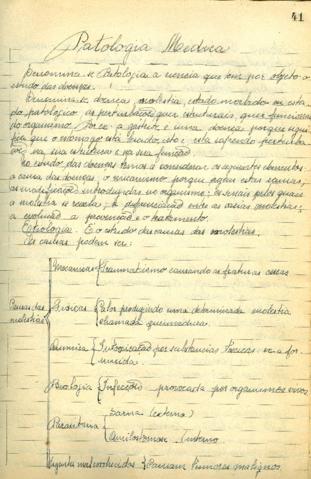 41
Patologia Medica
Denomina-se Patologia a ciencia que tem por objeto o
estudo das doenças.
Denomina-se doença, molestia, estado morbido ou esta-
do patologico as perturbações quer estruturais, quer funcionais
do organismo. Por ex. a gastrite é uma doença porque signi-
fica que o estomago está lesado, isto é, está sofrendo perturba-
ção na sua estrutura e na sua função.
No estudo das doenças temos a considerar os seguintes elementos:
a causa das doenças, o mecanismo porque agem estas causas,
as modificações introduzidas no organismo; os sinais pelos quais
a molestia se revela; a diferenciação entre as varias molestias;
a evolução a prevenção e o tratamento.
Etiologia. É o estudo das causas das molestias.
As causas podem ser:
Mecanicas Traumatismo causando as fraturas osseas
Causas das
molestias
Fisicas Calor produzindo uma determinada molestia
chamada queimadura.
Quimica Intoxicação por substancias toxicas
Biologia Infecção provocada por organismos vivos
Parasitaria
Sarna (externo)
Interno
Agentes mal conhecidos Causam tumores malignos.